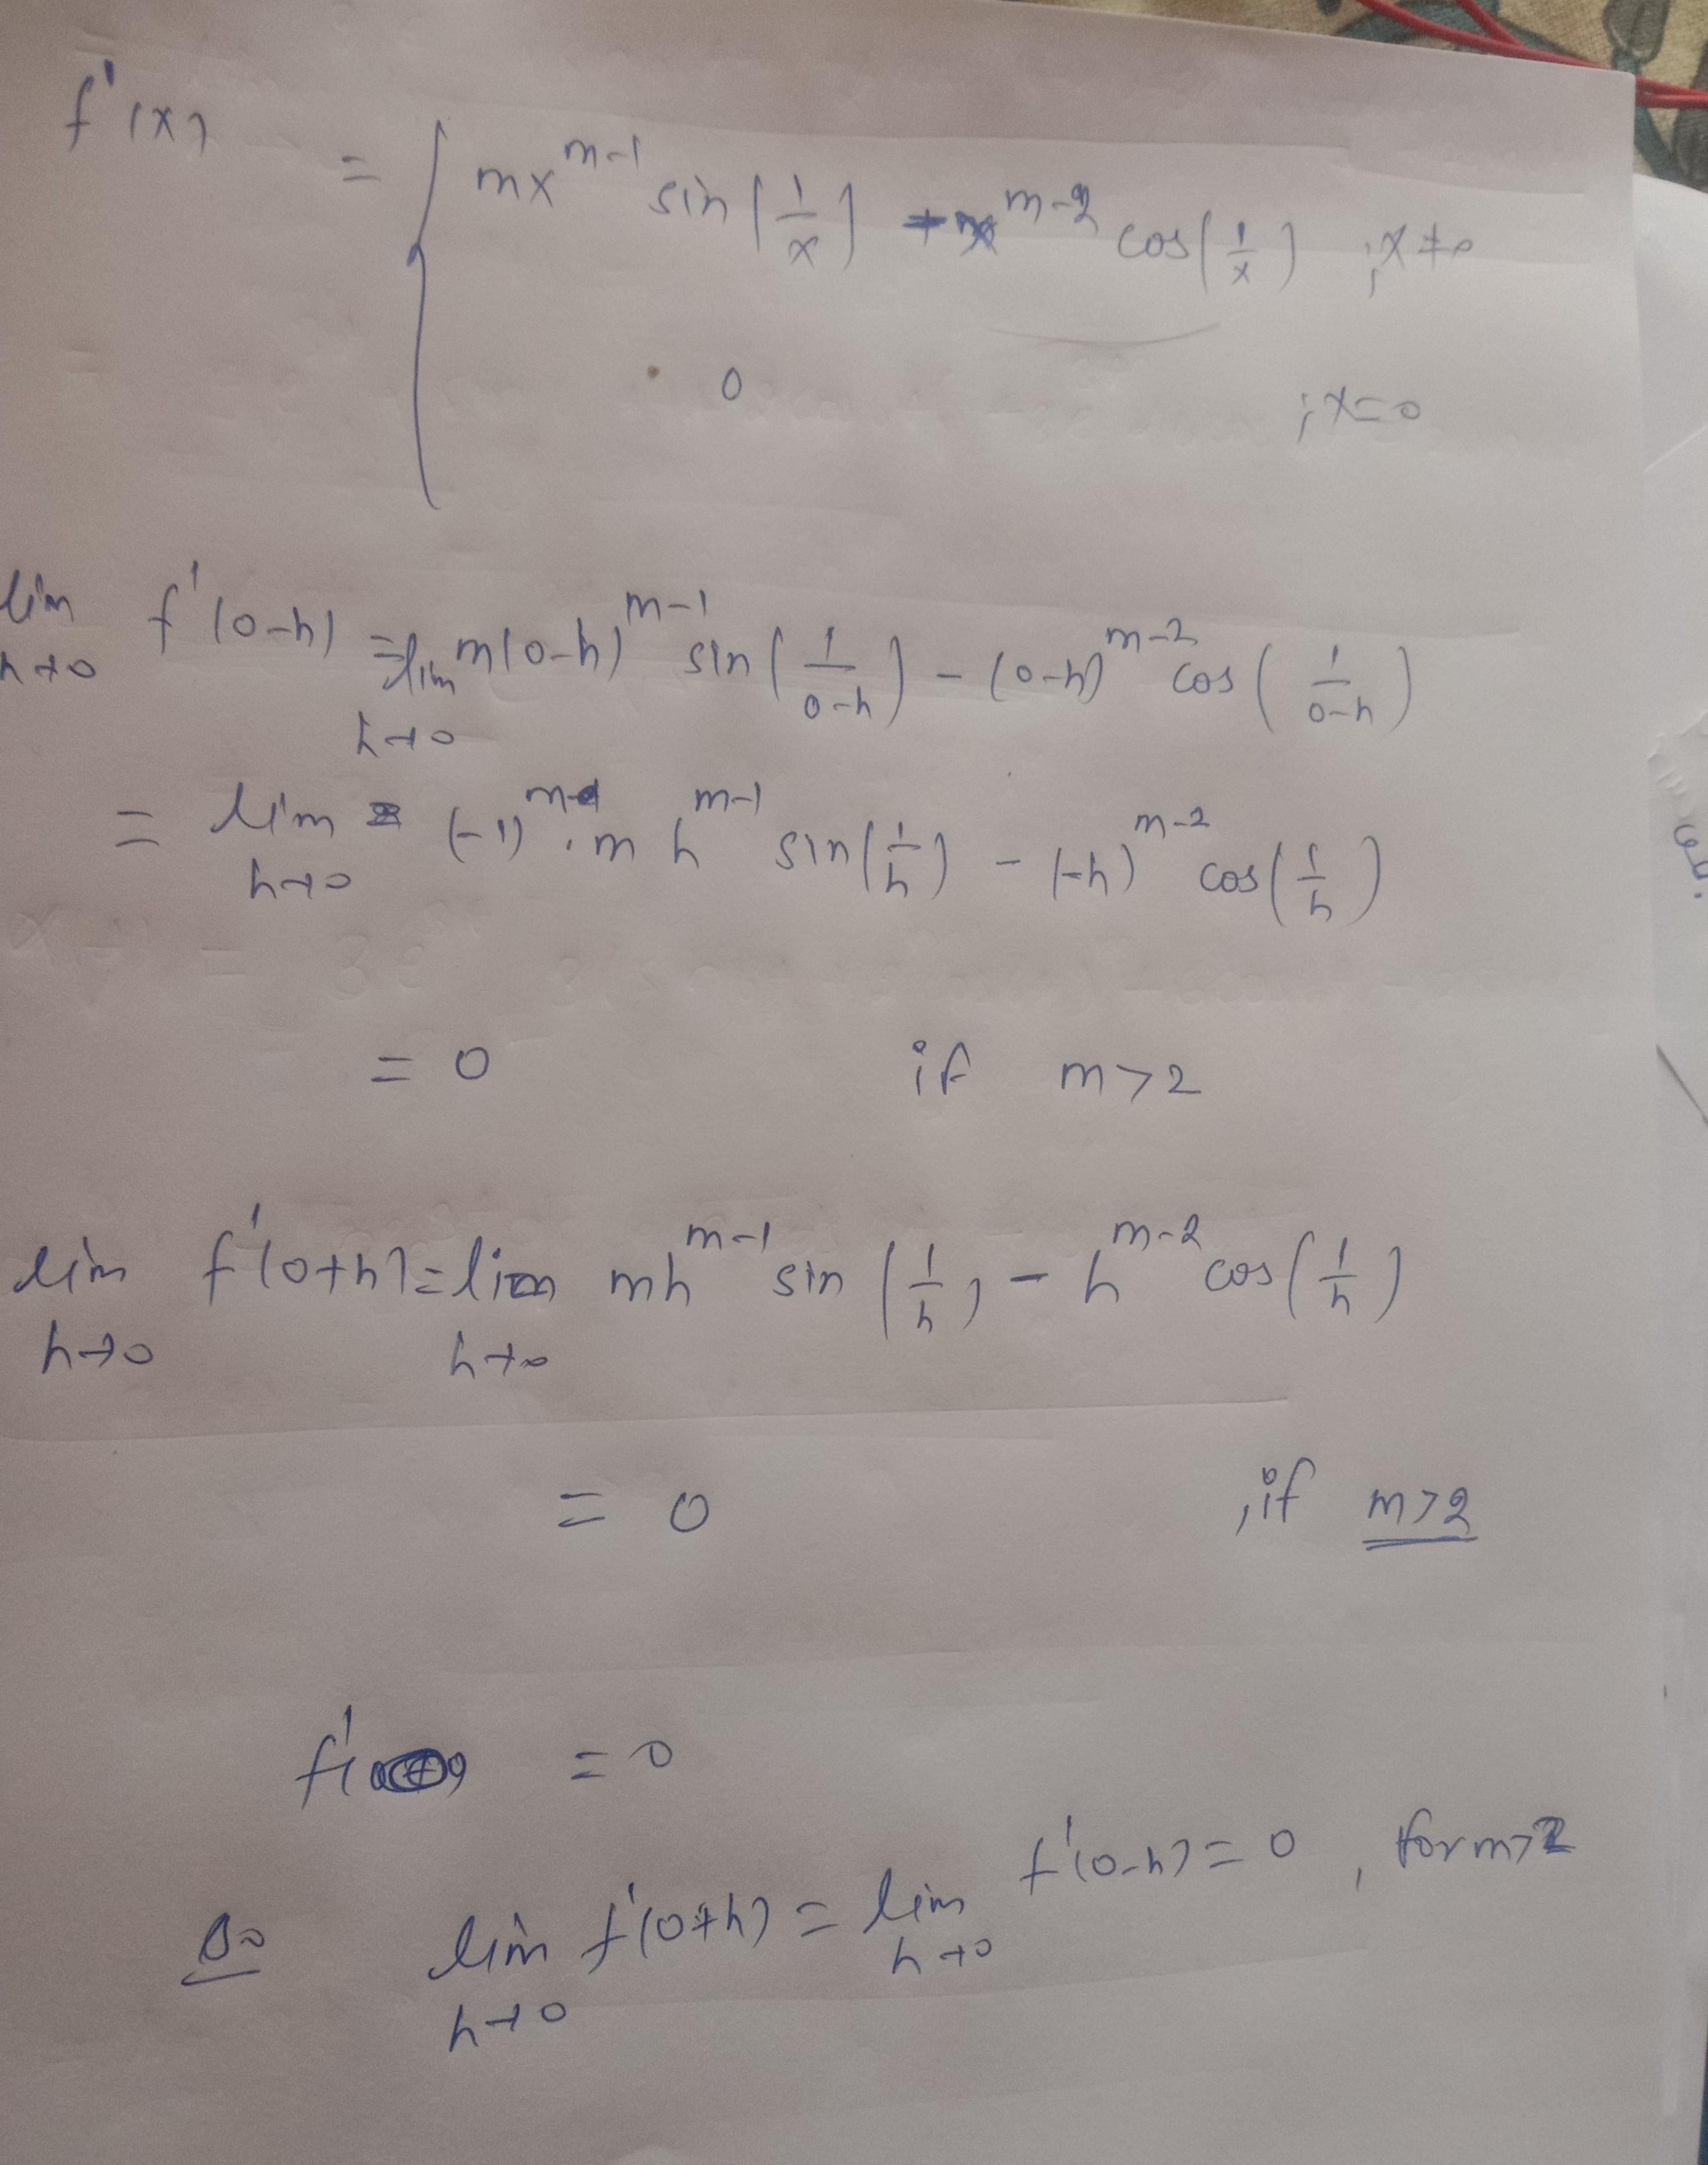 f'(x) = { mx^(m-1) sin(1/x) - x^(m-2) cos(1/x) ; x≠0
0 ; x=0
lim h→0 f'(0-h) = lim h→0 m(0-h)^(m-1) sin(1/(0-h)) - (0-h)^(m-2) cos(1/(0-h))
= lim h→0 (-1)^m . m h^(m-1) sin(1/h) - (-h)^(m-2) cos(1/h)
= 0 if m>2
lim h→0 f'(0+h) = lim h→0 mh^(m-1) sin(1/h) - h^(m-2) cos(1/h)
= 0 , if m>2
f'(0) = 0
So lim h→0 f'(0+h) = lim h→0 f'(0-h) = 0 , for m>2